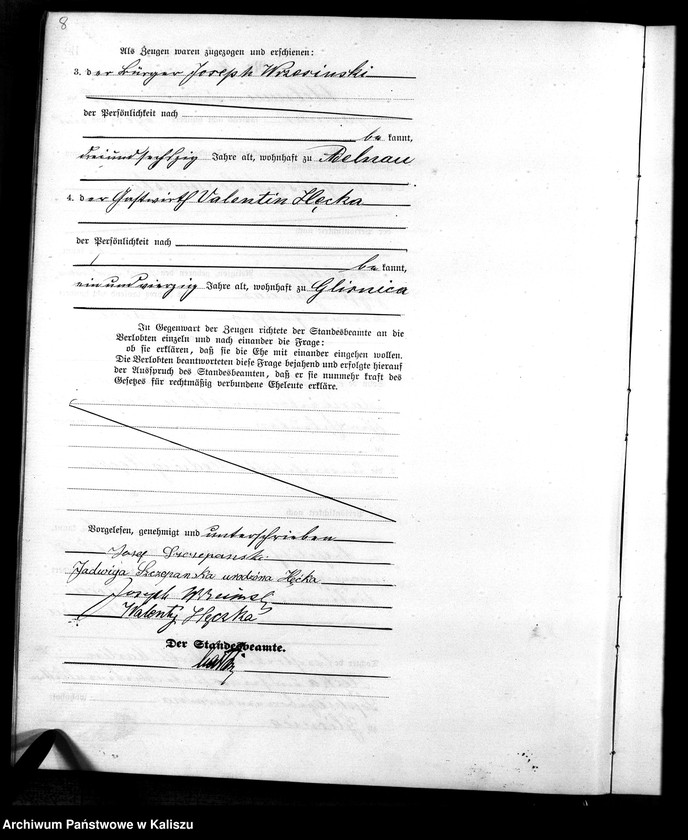 8
Als Zeugen waren zugezogen und erschienen:
3. der Bürger Joseph Wrzesinski
der Persönlichkeit nach
be kannt,
dreiundsechszig Jahre alt, wohnhaft zu Adelnau
4. der Gastwirth Valentin Hęcka
der Persönlichkeit nach
be kannt,
einundvierzig Jahre alt, wohnhaft zu Glisnica
In Gegenwart der Zeugen richtete der Standesbeamte an die
Verlobten einzeln und nach einander die Frage:
ob sie erklären, daß sie die Ehe mit einander eingehen wollen.
Die Verlobten beantworteten diese Frage bejahend und erfolgte hierauf
der Ausspruch des Standesbeamten, daß er sie nunmehr kraft des
Gesetzes für rechtmäßig verbundene Eheleute erkläre.
Vorgelesen, genehmigt und unterschrieben
Josef Szczepanski
Jadwiga Szczepanska urodzona Hęcka
Joseph
Walenty Hęczka
Der Standesbeamte.
Archiwum Państwowe w Kaliszu